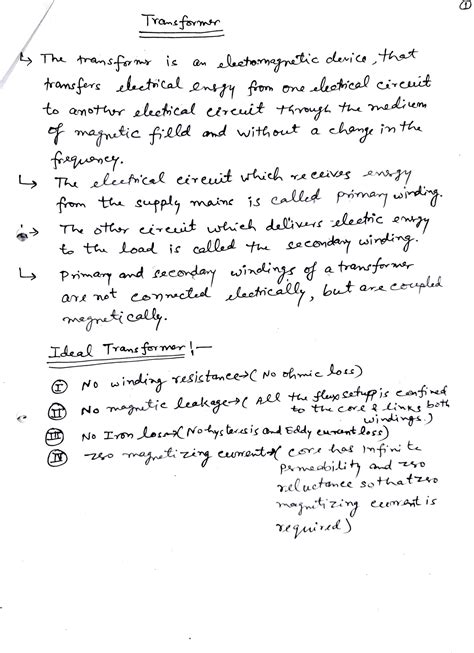 ①
Transformer
↳ The transformr is an electomagnetic device, that
transfers electrical enrgy from one electrical circuit
to another electrical circuit through the medium
of magnetic filld and without a change in the
frequency.
↳ The electrical circuit which receives energy
from the supply mains is called primary winding.
↳ The other circuit which delivers electric energy
to the load is called the secondary winding.
↳ Primary and secondary windings of a transformer
are not connected electrically, but are coupled
magnetically.
Ideal Transformer!—
Ⓘ No winding resistance→( No ohmic loss)
ⓘⓘ No magnetic leakage→( All the flux setup is confined
to the core & links both
windings.)
ⓘⓘⓘ No Iron loss→( No hysteresis and Eddy current loss)
ⓘⓥ zero magnetizing current→( core has Infinite
Permeability and zero
reluctance so that zero
magnetizing current is
required)